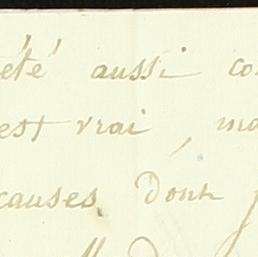 été aussi co
est vrai, ma
causes dont